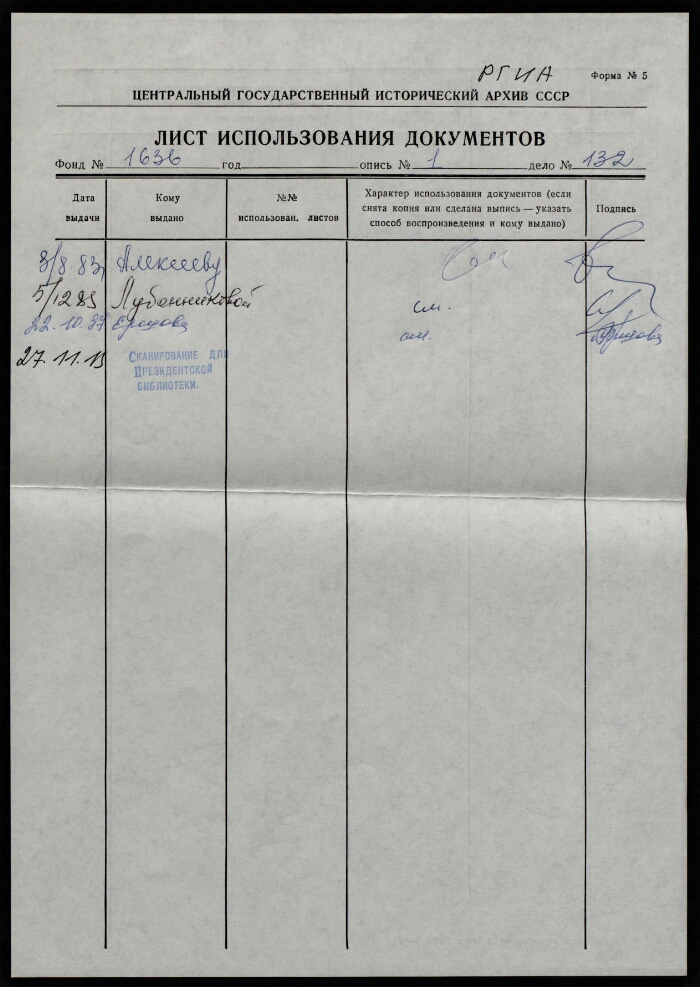 РГИА
Форма № 5
ЦЕНТРАЛЬНЫЙ ГОСУДАРСТВЕННЫЙ ИСТОРИЧЕСКИЙ АРХИВ СССР
ЛИСТ ИСПОЛЬЗОВАНИЯ ДОКУМЕНТОВ
Фонд № 1636 год опись № 1 дело № 132
Дата выдачи
Кому выдано
№№ использован. листов
Характер использования документов (если снята копия или сделана выпись — указать способ воспроизведения и кому выдано)
Подпись
3/8.83, Алексееву см
5/12 85 Лубанниковой см.
22.10.87 Ершова см. Ершова
27.11.13 СКАНИРОВАНИЕ ДЛЯ
ПРЕЗИДЕНТСКОЙ
БИБЛИОТЕКИ.